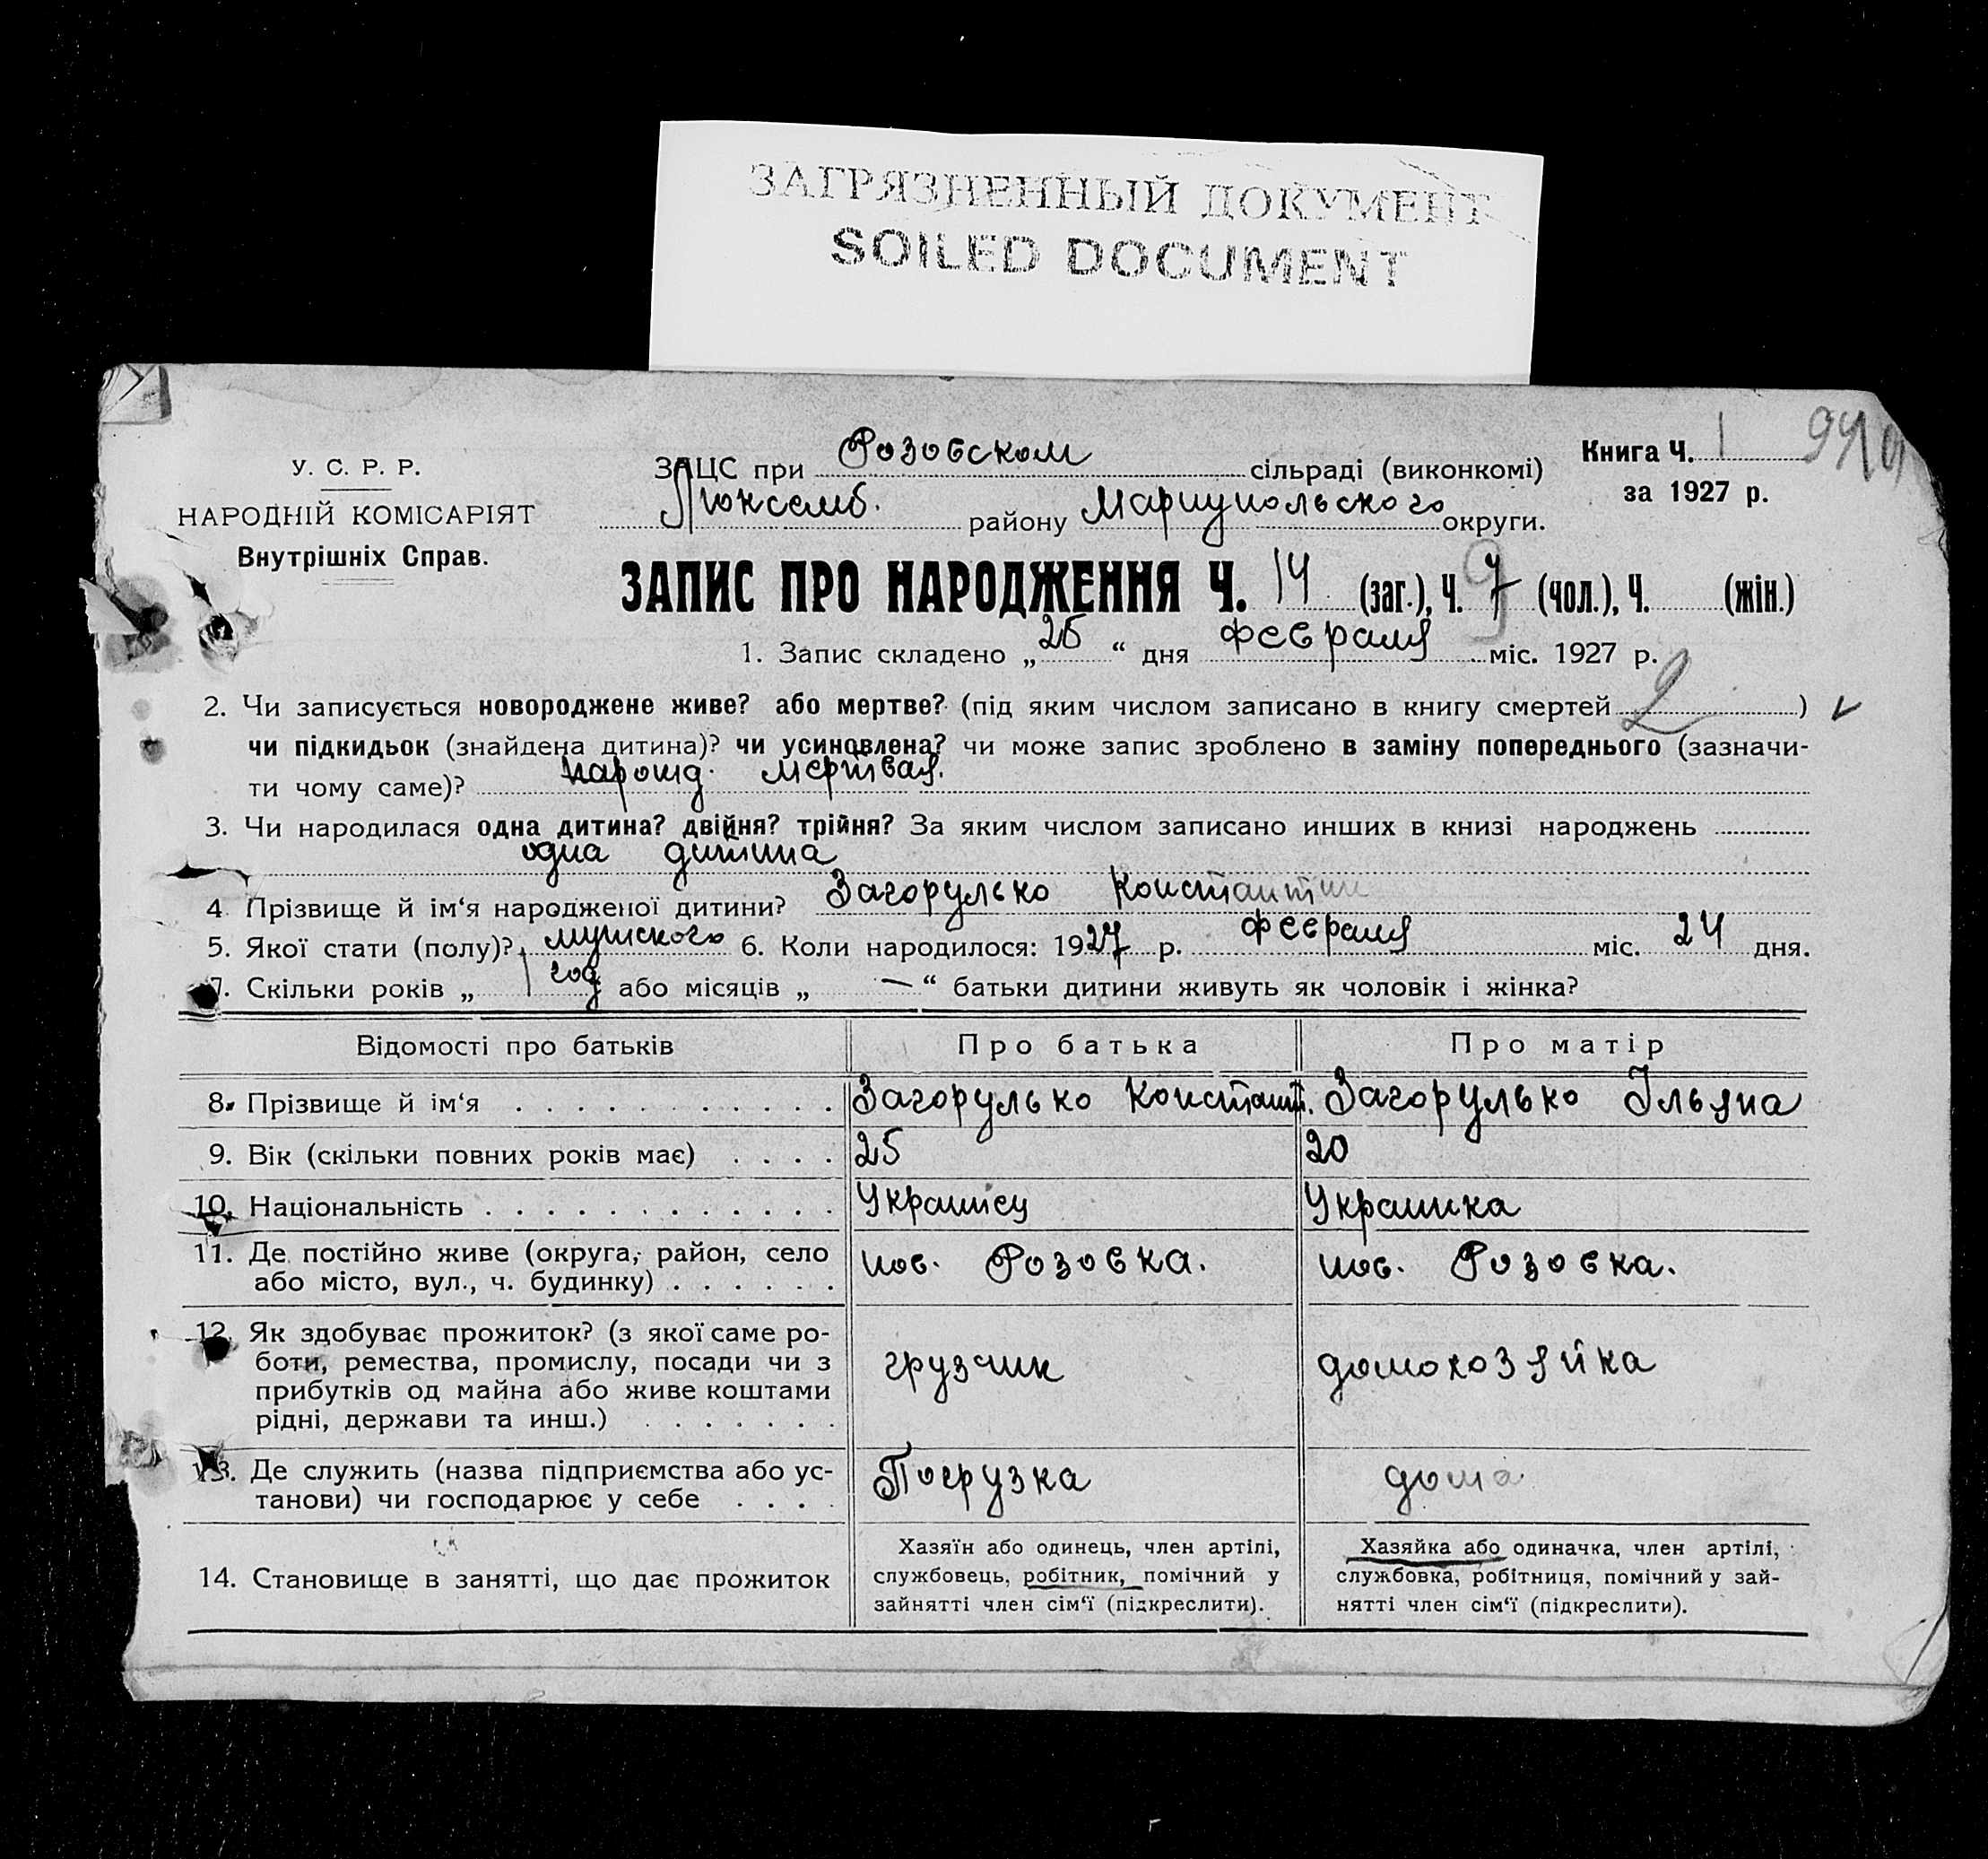 ЗАГРЯЗНЕННЫЙ ДОКУМЕНТ
SOILED DOCUMENT
У. С. Р. Р.
НАРОДНІЙ КОМІСАРІЯТ
Внутрішніх Справ.
ЗАЦС при Розовском сільраді (виконкомі)
Люксемб. району Мариупольского округи.
Книга Ч. 1
за 1927 р.
ЗАПИС ПРО НАРОДЖЕННЯ Ч. 14 (заг.), Ч. 9 (чол.), Ч. (жін.)
1. Запис складено „25“ дня февраля міс. 1927 р.
2. Чи записується новороджене живе? або мертве? (під яким числом записано в книгу смертей 2)
чи підкидьок (знайдена дитина)? чи усиновлена? чи може запис зроблено в заміну попереднього (зазначи-
ти чому саме)? мертвая.
3. Чи народилася одна дитина? двійня? трійня? За яким числом записано инших в книзі народжень
одна дитина
4. Прізвище й ім‘я народженої дитини? Загорулько Константин
5. Якої стати (полу)? мужского 6. Коли народилося: 1927 р. февраля міс. 24 дня.
7. Скільки років „1 год або місяців „—“ батьки дитини живуть як чоловік і жінка?
Відомості про батьків Про батька Про матір
8. Прізвище й ім‘я Загорулько Констант. Загорулько Ільяна
9. Вік (скільки повних років має) 25 20
10. Національність Украінец Украинка
11. Де постійно живе (округа, район, село
або місто, вул., ч. будинку) пос. Розовка. пос. Розовка.
12. Як здобуває прожиток? (з якої саме ро-
боти, ремества, промислу, посади чи з
прибутків од майна або живе коштами
рідні, держави та инш.) грузчик домохозяйка
13. Де служить (назва підприємства або ус-
танови) чи господарює у себе Погрузка дома
14. Становище в занятті, що дає прожиток
Хазяїн або одинець, член артілі,
службовець, робітник, помічний у
зайнятті член сім‘ї (підкреслити).
Хазяйка або одиначка, член артілі,
службовка, робітниця, помічний у зай-
нятті член сім‘ї (підкреслити).